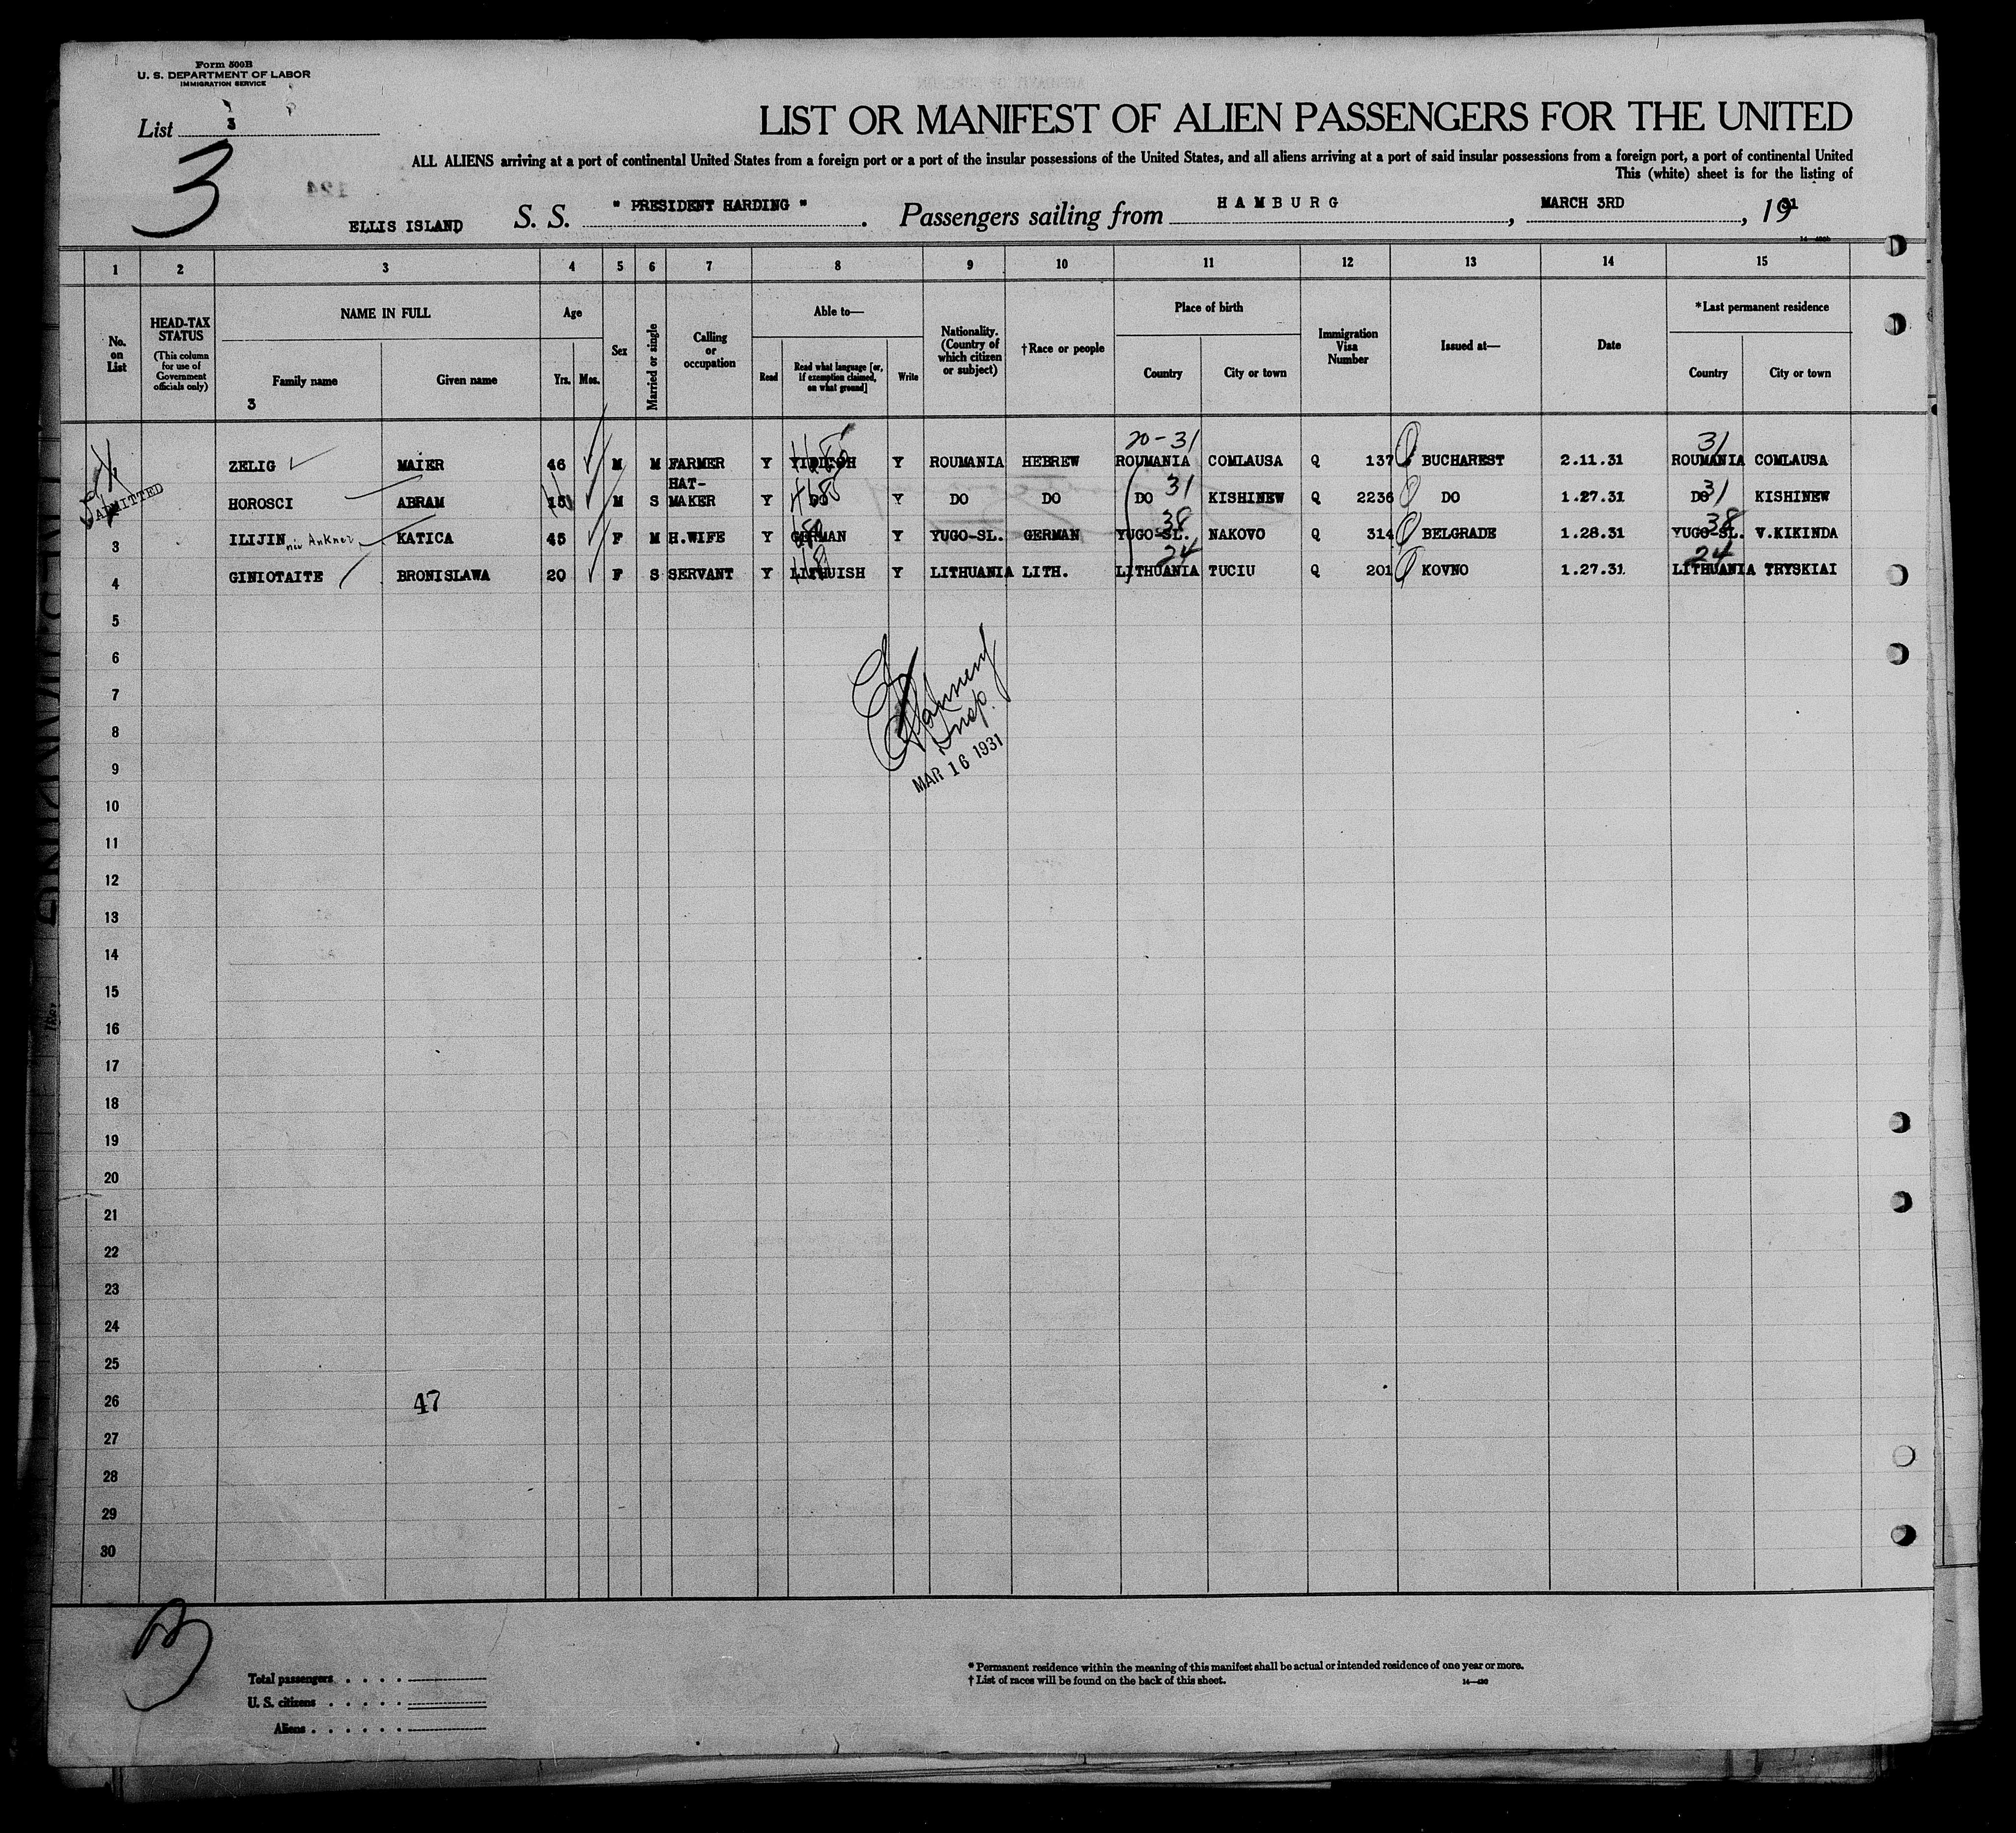 Form 500B
U. S. DEPARTMENT OF LABOR
IMMIGRATION SERVICE
List 3
3
LIST OR MANIFEST OF ALIEN PASSENGERS FOR THE UNITED
ALL ALIENS arriving at a port of continental United States from a foreign port or a port of the insular possessions of the United States, and all aliens arriving at a port of said insular possessions from a foreign port, a port of continental United
This (white) sheet is for the listing of
ELLIS ISLAND S. S. " PRESIDENT HARDING ". Passengers sailing from HAMBURG, MARCH 3RD, 1931
1 2 3 4 5 6 7 8 9 10 11 12 13 14 15
No. on List
HEAD-TAX STATUS (This column for use of Government officials only)
NAME IN FULL
Family name
Given name
3
Age
Yrs. Mos.
Sex
Married or single
Calling or occupation
Able to—
Read
Read what language [or, if exemption claimed, on what ground]
Write
Nationality. (Country of which citizen or subject)
†Race or people
Place of birth
Country
City or town
Immigration Visa Number
Issued at—
Date
*Last permanent residence
Country
City or town
20-31 31
ZELIG MAIER 46 M M FARMER Y YIDDISH Y ROUMANIA HEBREW ROUMANIA COMLAUSA Q 137 BUCHAREST 2.11.31 ROUMANIA COMLAUSA
ADMITTED HOROSCI ABRAM M S HAT-MAKER Y DO Y DO DO DO 31 KISHINEW Q 2236 DO 1.27.31 DO 31 KISHINEW
3 ILIJIN Ankner KATICA 45 F M H.WIFE Y GERMAN Y YUGO-SL. GERMAN YUGO-SL. 38 NAKOVO Q 314 BELGRADE 1.28.31 YUGO-SL. 38 V.KIKINDA
4 GINIOTAITE BRONISLAWA 20 F S SERVANT Y LITHUISH Y LITHUANIA LITH. LITHUANIA 24 TUCIU Q 201 KOVNO 1.27.31 LITHUANIA 24 TRYSKIAI
5
6
7
8
Insp.
9
MAR 16 1931
10
11
12
13
14
15
16
17
18
19
20
21
22
23
24
25
26
47
27
28
29
30
Total passengers . . . .
U. S. citizens . . . . .
Aliens . . . . . .
* Permanent residence within the meaning of this manifest shall be actual or intended residence of one year or more.
† List of races will be found on the back of this sheet.